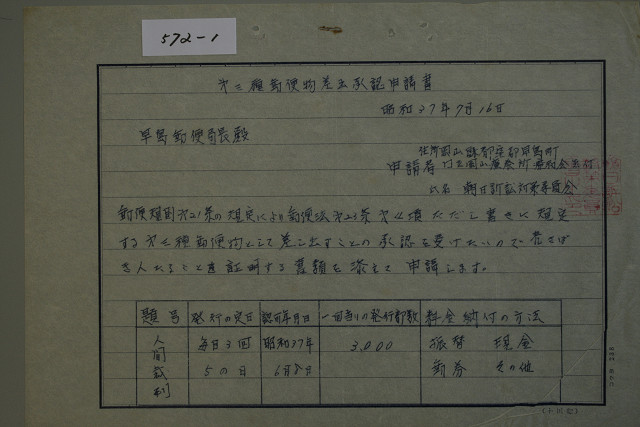 572-1
才三種郵便物差出承認申請書
昭和37年7月16日
早島郵便局長殿
住所岡山縣都窪郡早島町
申請者 国立岡山療養所
氏名 朝日訴訟対策委員会
郵便規則才21条の規定により郵便法才23条才 項ただし書きに規定
する才三種郵便物として差し出すことの承認を受けたいので差出
人たることを証明する書類を添えて申請します。
題号 発行の定日 認可年月日 一回当りの発行部数 料金納付の方法
人間裁判 毎日3回 昭和37年 3,000 振替 現金
5の日 6月8日 郵券 その他